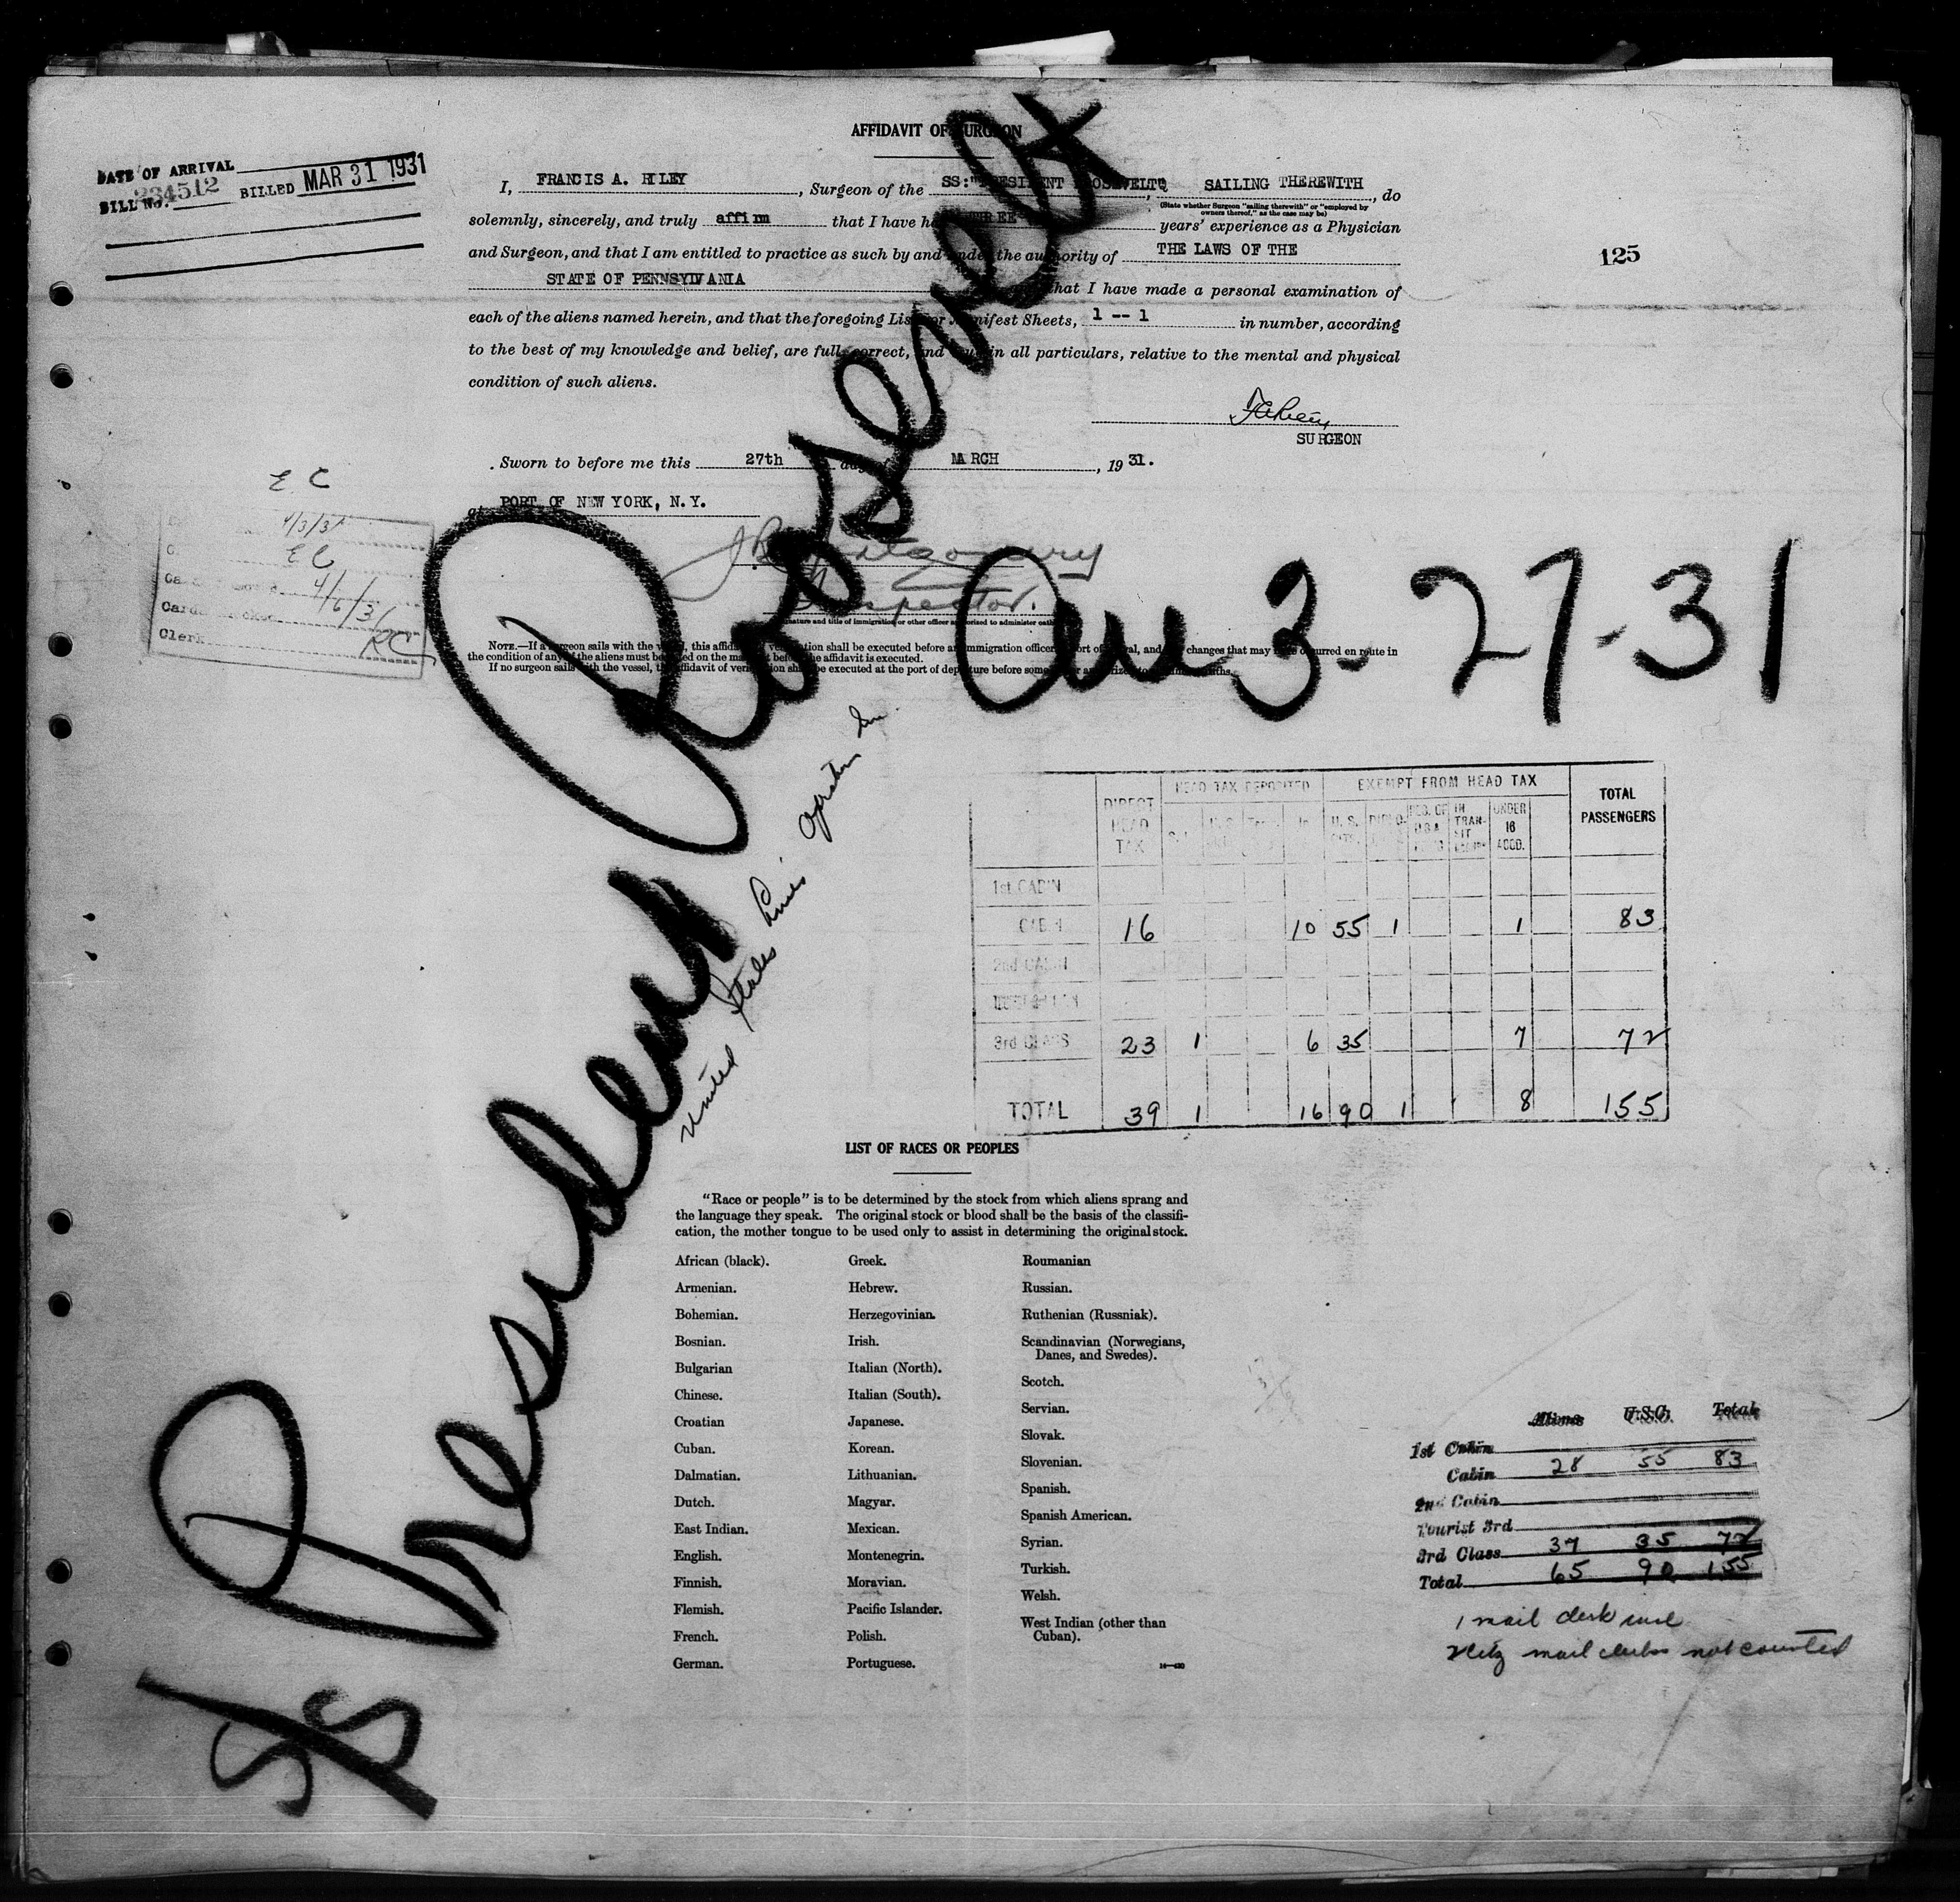 AFFIDAVIT OF SURGEON
DATE OF ARRIVAL
BILL NO. 234512 BILLED MAR 31 1931
I, FRANCIS A. RILEY, Surgeon of the SS:"PRESIDENT ROOSEVELTQ, SAILING THEREWITH, do
(State whether Surgeon "sailing therewith" or "employed by owners thereof," as the case may be)
solemnly, sincerely, and truly affirm that I have had THREE years' experience as a Physician
and Surgeon, and that I am entitled to practice as such by and under the authority of THE LAWS OF THE
STATE OF PENNSYLVANIA and that I have made a personal examination of
each of the aliens named herein, and that the foregoing Lists or Manifest Sheets, 1 -- 1 in number, according
to the best of my knowledge and belief, are full, correct, and true in all particulars, relative to the mental and physical
condition of such aliens.
125
SURGEON
Sworn to before me this 27th day of MARCH, 19 31.
at PORT OF NEW YORK, N.Y.
J R Montgomery
Inspector.
(Signature and title of immigration or other officer authorized to administer oaths)
E C
4/3/31
E C
4/6/31
Clerk RC
NOTE.—If a surgeon sails with the vessel, this affidavit of verification shall be executed before an immigration officer at port of arrival, and any changes that may have occurred en route in
the condition of any of the aliens must be noted on the manifest before the affidavit is executed.
If no surgeon sails with the vessel, the affidavit of verification shall be executed at the port of departure before some officer authorized to administer oaths.
SS President Roosevelt
Arr 3-27-31
United States Lines
DIRECT HEAD TAX HEAD TAX DEPOSITED EXEMPT FROM HEAD TAX TOTAL PASSENGERS
U.S. CITS. IN TRANSIT UNDER 16 ACCD.
1st CABIN
CABIN 16 10 55 1 1 83
2nd CABIN
3rd CLASS 23 1 6 35 7 72
TOTAL 39 1 16 90 1 8 155
LIST OF RACES OR PEOPLES
"Race or people" is to be determined by the stock from which aliens sprang and
the language they speak. The original stock or blood shall be the basis of the classifi-
cation, the mother tongue to be used only to assist in determining the original stock.
African (black).
Armenian.
Bohemian.
Bosnian.
Bulgarian
Chinese.
Croatian
Cuban.
Dalmatian.
Dutch.
East Indian.
English.
Finnish.
Flemish.
French.
German.
Greek.
Hebrew.
Herzegovinian.
Irish.
Italian (North).
Italian (South).
Japanese.
Korean.
Lithuanian.
Magyar.
Mexican.
Montenegrin.
Moravian.
Pacific Islander.
Polish.
Portuguese.
Roumanian
Russian.
Ruthenian (Russniak).
Scandinavian (Norwegians,
Danes, and Swedes).
Scotch.
Servian.
Slovak.
Slovenian.
Spanish.
Spanish American.
Syrian.
Turkish.
Welsh.
West Indian (other than
Cuban).
Aliens U.S.C. Total
1st Cabin
Cabin 28 55 83
2nd Cabin
Tourist 3rd
3rd Class 37 35 72
Total 65 90 155
1 mail clerk incl
mail clerks not counted